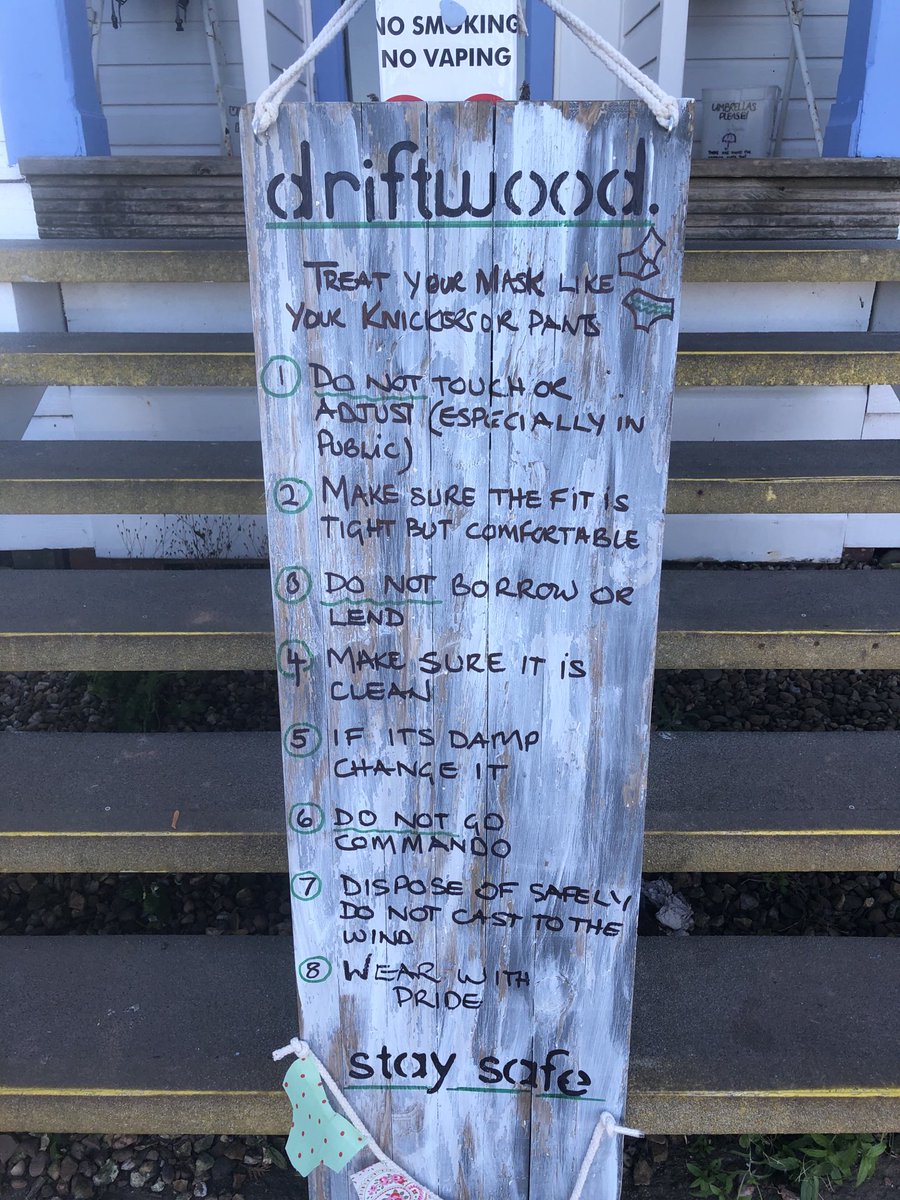 NO SMOKING
NO VAPING
UMBRELLAS
PLEASE!
driftwood.
TREAT YOUR MASK LIKE
YOUR KNICKERS OR PANTS
1 DO NOT TOUCH OR
ADJUST (ESPECIALLY IN
PUBLIC)
2 MAKE SURE THE FIT IS
TIGHT BUT COMFORTABLE
3 DO NOT BORROW OR
LEND
4 MAKE SURE IT IS
CLEAN
5 IF ITS DAMP
CHANGE IT
6 DO NOT GO
COMMANDO
7 DISPOSE OF SAFELY,
DO NOT CAST TO THE
WIND
8 WEAR WITH
PRIDE
stay safe